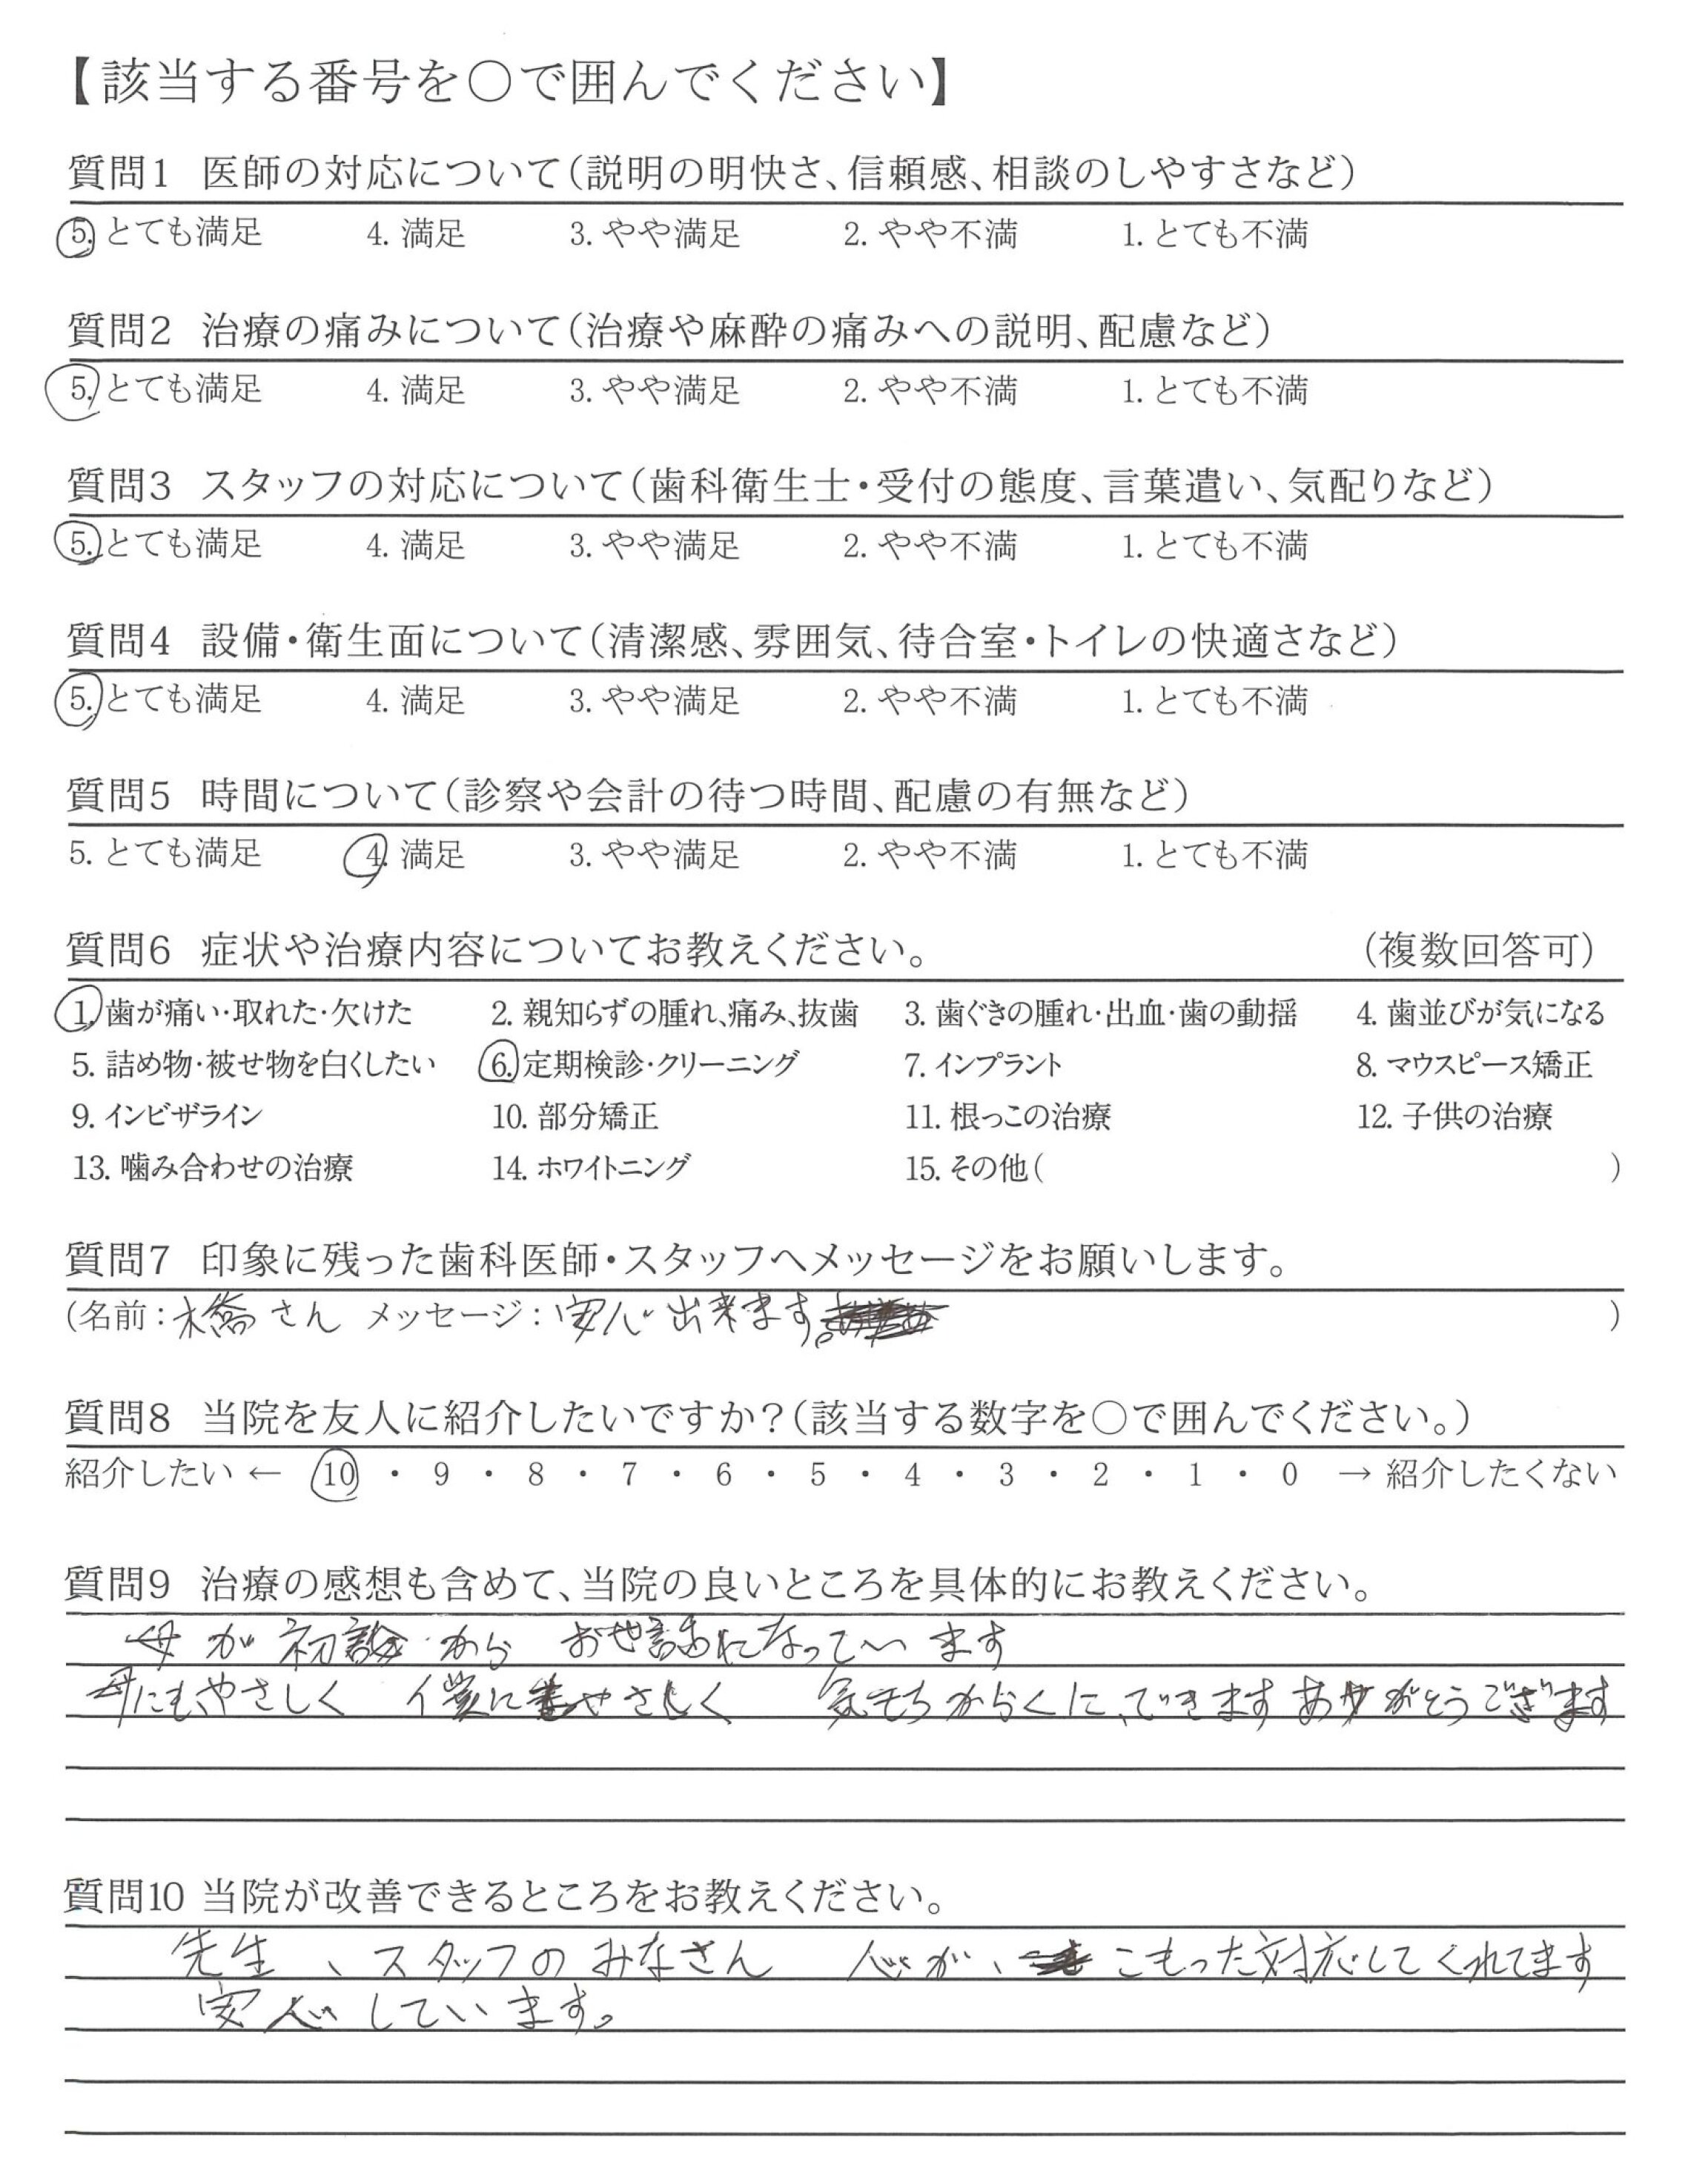 【該当する番号を○で囲んでください】
質問1 医師の対応について（説明の明快さ、信頼感、相談のしやすさなど）
5. とても満足 4. 満足 3. やや満足 2. やや不満 1. とても不満
質問2 治療の痛みについて（治療や麻酔の痛みへの説明、配慮など）
5. とても満足 4. 満足 3. やや満足 2. やや不満 1. とても不満
質問3 スタッフの対応について（歯科衛生士・受付の態度、言葉遣い、気配りなど）
5. とても満足 4. 満足 3. やや満足 2. やや不満 1. とても不満
質問4 設備・衛生面について（清潔感、雰囲気、待合室・トイレの快適さなど）
5. とても満足 4. 満足 3. やや満足 2. やや不満 1. とても不満
質問5 時間について（診察や会計の待つ時間、配慮の有無など）
5. とても満足 4. 満足 3. やや満足 2. やや不満 1. とても不満
質問6 症状や治療内容についてお教えください。 （複数回答可）
1. 歯が痛い・取れた・欠けた 2. 親知らずの腫れ、痛み、抜歯 3. 歯ぐきの腫れ・出血・歯の動揺 4. 歯並びが気になる
5. 詰め物・被せ物を白くしたい 6. 定期検診・クリーニング 7. インプラント 8. マウスピース矯正
9. インビザライン 10. 部分矯正 11. 根っこの治療 12. 子供の治療
13. 噛み合わせの治療 14. ホワイトニング 15. その他（ ）
質問7 印象に残った歯科医師・スタッフへメッセージをお願いします。
（名前：橋さん メッセージ：安心出来ます。 ）
質問8 当院を友人に紹介したいですか？（該当する数字を○で囲んでください。）
紹介したい ← 10 ・ 9 ・ 8 ・ 7 ・ 6 ・ 5 ・ 4 ・ 3 ・ 2 ・ 1 ・ 0 → 紹介したくない
質問9 治療の感想も含めて、当院の良いところを具体的にお教えください。
母が初診からお世話になっています
母にもやさしく 僕にもやさしく 気もちがらくに、できますありがとうござます
質問10 当院が改善できるところをお教えください。
先生、スタッフのみなさん 心が、こもった対応してくれてます
安心しています。